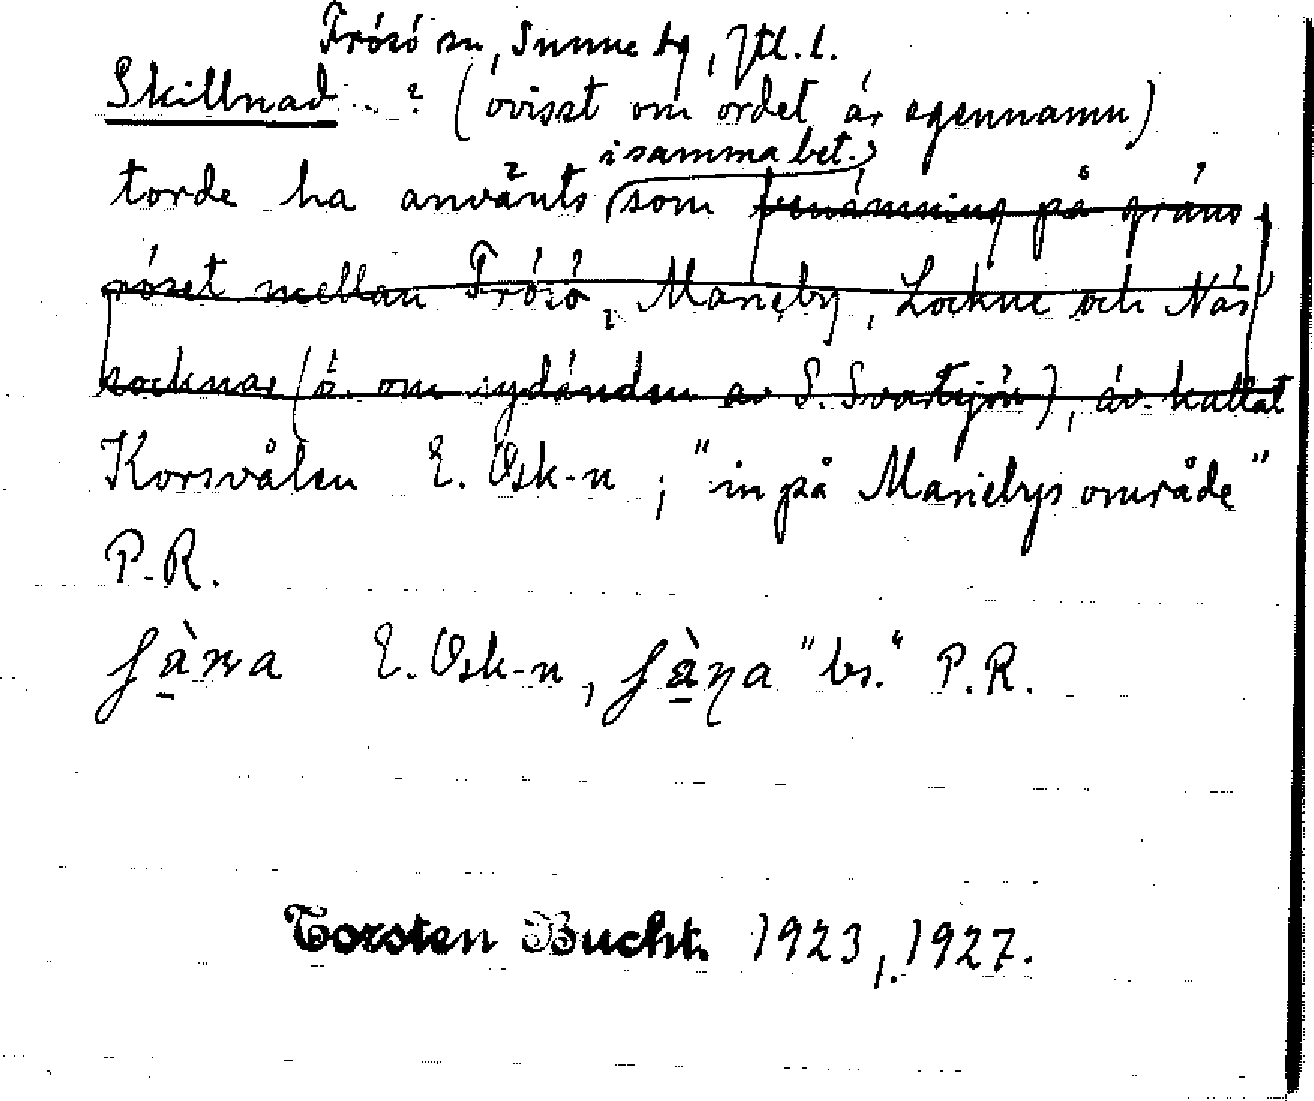 Frösö sn, Sunne tg, Jtl. l.
Skillnad ..? (ovisst om ordet är egennamn)
i samma bet.
torde ha använts som benämning på gräns-
röset mellan Frösö, Marieby, Lockne och Näs
socknar (ö. om sydänden av S. Svartsjön), äv. kallat
Korsvålen E. Osk-n ; "in på Mariebys område"
P.R.
E. Osk-n, "bs." P.R.
Torsten Bucht. 1923, 1927.